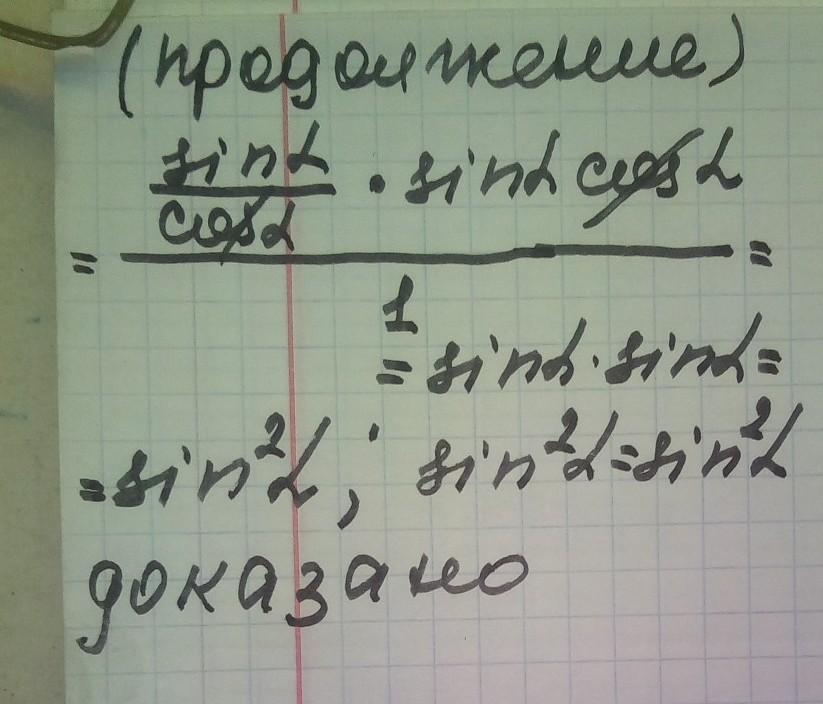 (продолжение)
sinα
cosα
· sinα cosα
= =
1
= sinα · sinα =
= sin²α ; sin²α = sin²α
доказано